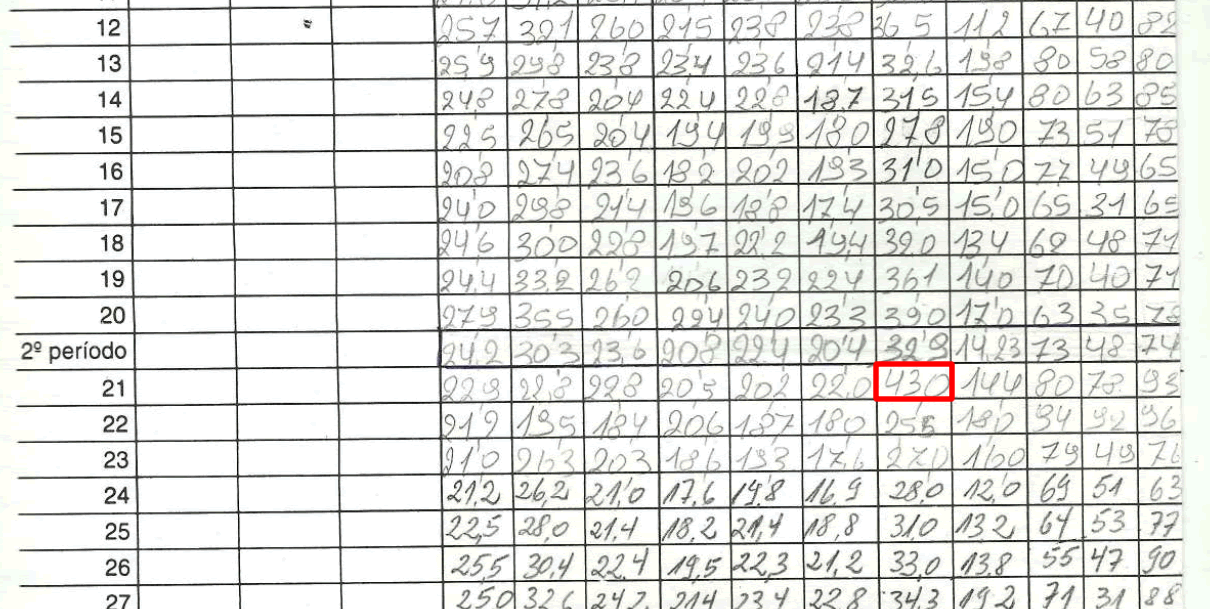 12 257 321 260 215 238 238 36 5 11 2 67 40 82
13 25,9 298 238 23,4 236 214 32,6 198 80 58 80
14 248 278 204 224 228 187 315 154 80 63 85
15 225 265 204 194 199 180 278 190 73 51 78
16 208 274 236 182 202 193 310 150 77 49 65
17 240 298 214 196 188 174 305 150 65 31 65
18 246 300 228 197 222 194 320 134 68 48 71
19 244 332 262 206 232 224 361 140 70 40 71
20 279 355 260 224 240 233 390 170 63 35 78
2º período 24,2 30,3 23,6 208 224 204 32,9 14,23 73 48 74
21 229 228 228 205 202 22,0 43,0 144 80 78 93
22 219 195 184 206 187 180 255 180 94 92 96
23 210 263 203 186 193 17,6 270 160 79 49 76
24 21,2 26,2 21,0 17,6 19,8 16,9 28,0 12,0 69 51 63
25 22,5 28,0 21,4 18,2 21,4 18,8 31,0 13,2 64 53 77
26 25,5 30,4 22,4 19,5 22,3 21,2 33,0 13,8 55 47 90
27 250 326 242 214 234 228 343 19,2 71 31 88